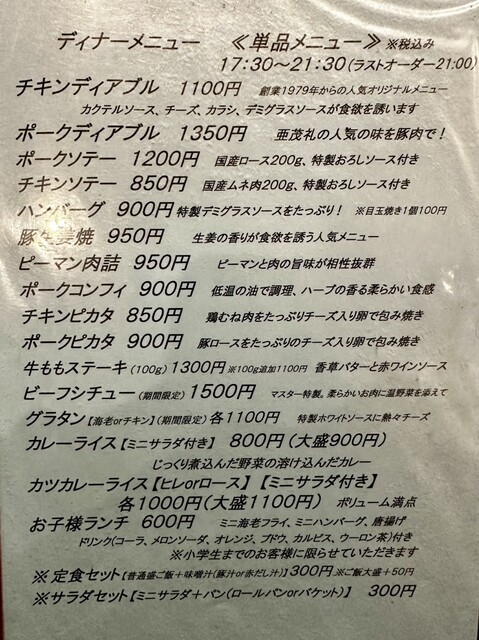 ディナーメニュー　≪単品メニュー≫ ※税込み
17:30～21:30(ラストオーダー21:00)
チキンディアブル　1100円　創業1979年からの人気オリジナルメニュー
カクテルソース、チーズ、カラシ、デミグラスソースが食欲を誘います
ポークディアブル　1350円　亜茂礼の人気の味を豚肉で！
ポークソテー　1200円　国産ロース200g、特製おろしソース付き
チキンソテー　850円　国産ムネ肉200g、特製おろしソース付き
ハンバーグ　900円 特製デミグラスソースをたっぷり！　※目玉焼き1個100円
豚生姜焼　950円　生姜の香りが食欲を誘う人気メニュー
ピーマン肉詰　950円　ピーマンと肉の旨味が相性抜群
ポークコンフィ　900円　低温の油で調理、ハーブの香る柔らかい食感
チキンピカタ　850円　鶏むね肉をたっぷりチーズ入り卵で包み焼き
ポークピカタ　900円　豚ロースをたっぷりのチーズ入り卵で包み焼き
牛ももステーキ (100g) 1300円 ※100g追加1100円　香草バターと赤ワインソース
ビーフシチュー (期間限定) 1500円　マスター特製。柔らかいお肉に温野菜を添えて
グラタン【海老orチキン】(期間限定) 各1100円　特製ホワイトソースに熱々チーズ
カレーライス【ミニサラダ付き】　800円 (大盛900円)
じっくり煮込んだ野菜の溶け込んだカレー
カツカレーライス【ヒレorロース】【ミニサラダ付き】
各1000円(大盛1100円)　ボリューム満点
お子様ランチ　600円　ミニ海老フライ、ミニハンバーグ、唐揚げ
ドリンク(コーラ、メロンソーダ、オレンジ、ブドウ、カルピス、ウーロン茶)付き
※小学生までのお客様に限らせていただきます
※定食セット【普通盛ご飯＋味噌汁(豚汁or赤だし汁)】300円 ※ご飯大盛＋50円
※サラダセット【ミニサラダ＋パン(ロールパンorバケット)】　300円